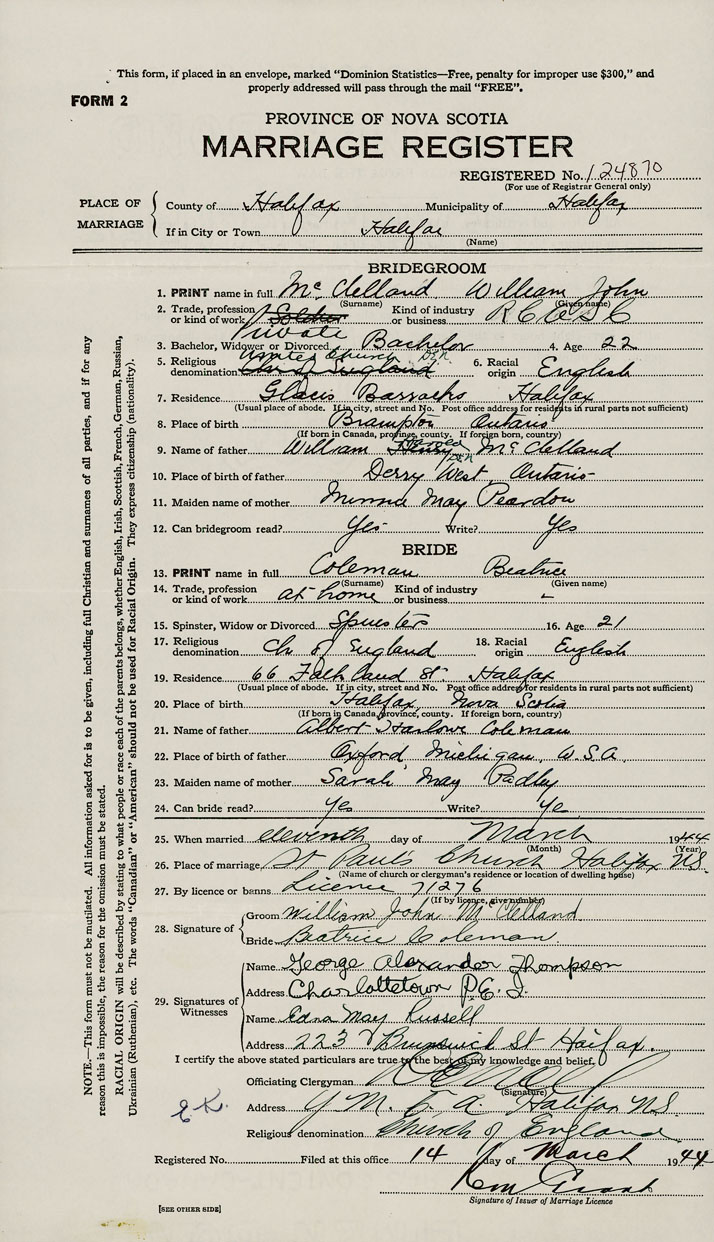 This form, if placed in an envelope, marked "Dominion Statistics—Free, penalty for improper use $300," and
properly addressed will pass through the mail "FREE".
FORM 2
PROVINCE OF NOVA SCOTIA
MARRIAGE REGISTER
REGISTERED No. 124870
(For use of Registrar General only)
PLACE OF MARRIAGE
County of Halifax Municipality of Halifax
If in City or Town Halifax
(Name)
BRIDEGROOM
1. PRINT name in full McClelland William John
(Surname) (Given name)
2. Trade, profession or kind of work Soldier Private Kind of industry or business
3. Bachelor, Widower or Divorced Bachelor 4. Age 22
5. Religious denomination United Church Ch of England 6. Racial origin English
7. Residence Glacis Barracks Halifax
(Usual place of abode. If in city, street and No. Post office address for residents in rural parts not sufficient)
8. Place of birth Brampton Ontario
(If born in Canada, province, county. If foreign born, country)
9. Name of father William Henry Harold McClelland
10. Place of birth of father Derry West Ontario
11. Maiden name of mother Minnie May Peardon
12. Can bridegroom read? Yes Write? Yes
BRIDE
13. PRINT name in full Coleman Beatrice
(Surname) (Given name)
14. Trade, profession or kind of work at home Kind of industry or business -
15. Spinster, Widow or Divorced Spinster 16. Age 21
17. Religious denomination Ch of England 18. Racial origin English
19. Residence 66 Falkland St. Halifax
(Usual place of abode. If in city, street and No. Post office address for residents in rural parts not sufficient)
20. Place of birth Halifax, Nova Scotia
(If born in Canada, province, county. If foreign born, country)
21. Name of father Albert Harlowe Coleman
22. Place of birth of father Oxford, Michigan, U.S.A.
23. Maiden name of mother Sarah May Padley
24. Can bride read? Yes Write? Yes
25. When married eleventh day of March 1944
(Month) (Year)
26. Place of marriage St Paul's Church Halifax N.S.
(Name of church or clergyman's residence or location of dwelling house)
27. By licence or banns Licence 71276
(If by licence, give number)
28. Signature of
Groom William John McClelland
Bride Beatrice Coleman
29. Signatures of Witnesses
Name George Alexander Thompson
Address Charlottetown P.E.I.
Name Edna May Russell
Address 223 Brunswick St Halifax.
I certify the above stated particulars are true to the best of my knowledge and belief.
Officiating Clergyman
(Signature)
Address Y M C A Halifax NS
E.K.
Religious denomination Church of England
Registered No. Filed at this office 14 day of March 1944
Signature of Issuer of Marriage Licence
[SEE OTHER SIDE]
NOTE.—This form must not be mutilated. All information asked for is to be given, including full Christian and surnames of all parties, and if for any
reason this is impossible, the reason for the omission must be stated.
RACIAL ORIGIN will be described by stating to what people or race each of the parents belongs, whether English, Irish, Scottish, French, German, Russian,
Ukrainian (Ruthenian), etc. The words "Canadian" or "American" should not be used for Racial Origin. They express citizenship (nationality).